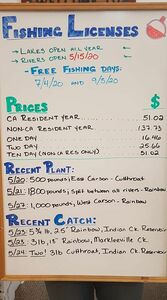 FISHING LICENSES
→ LAKES OPEN ALL YEAR ←
→ RIVERS OPEN 5/15/20 ←
- FREE FISHING DAYS:
7/4/20 AND 9/5/20
PRICES $
CA RESIDENT YEAR... 51.02
NON-CA RESIDENT YEAR... 137.73
ONE DAY... 16.46
TWO DAY... 25.66
TEN DAY (NON CA RES ONLY) 51.02
RECENT PLANT:
5/20: 500 pounds, East Carson - Cutthroat
5/21: 1800 pounds, Split between all rivers - Rainbow
5/27: 1,000 pounds, West Carson - Rainbow
RECENT CATCH:
5/23 5 3/4 lb, 25" Rainbow, Indian Ck. Reservoir
5/23: 3 lb, 15" Rainbow, Markleeville Ck.
5/24: Two! 3lb Cutthroat, Indian Ck. Reservoir